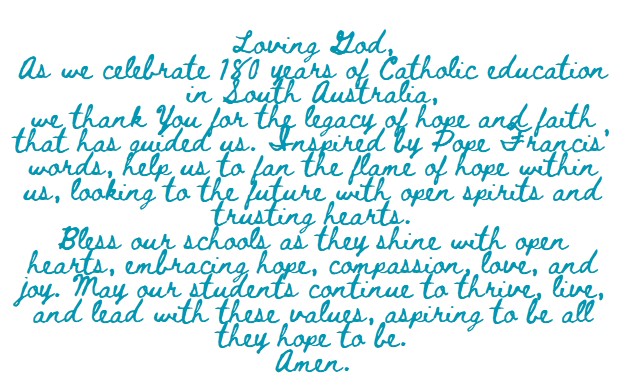 Loving God,
As we celebrate 180 years of Catholic education
in South Australia,
we thank You for the legacy of hope and faith
that has guided us. Inspired by Pope Francis'
words, help us to fan the flame of hope within
us, looking to the future with open spirits and
trusting hearts.
Bless our schools as they shine with open
hearts, embracing hope, compassion, love, and
joy. May our students continue to thrive, live,
and lead with these values, aspiring to be all
they hope to be.
Amen.